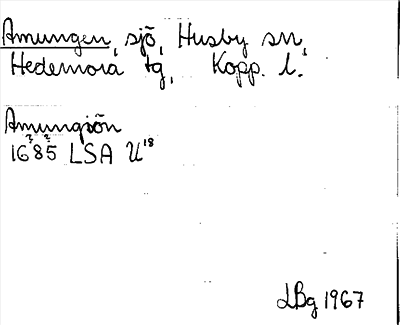 Amungen, sjö, Husby sn,
Hedemora tg, Kopp. l.
Amungsön
1685 LSA U18
LBg 1967